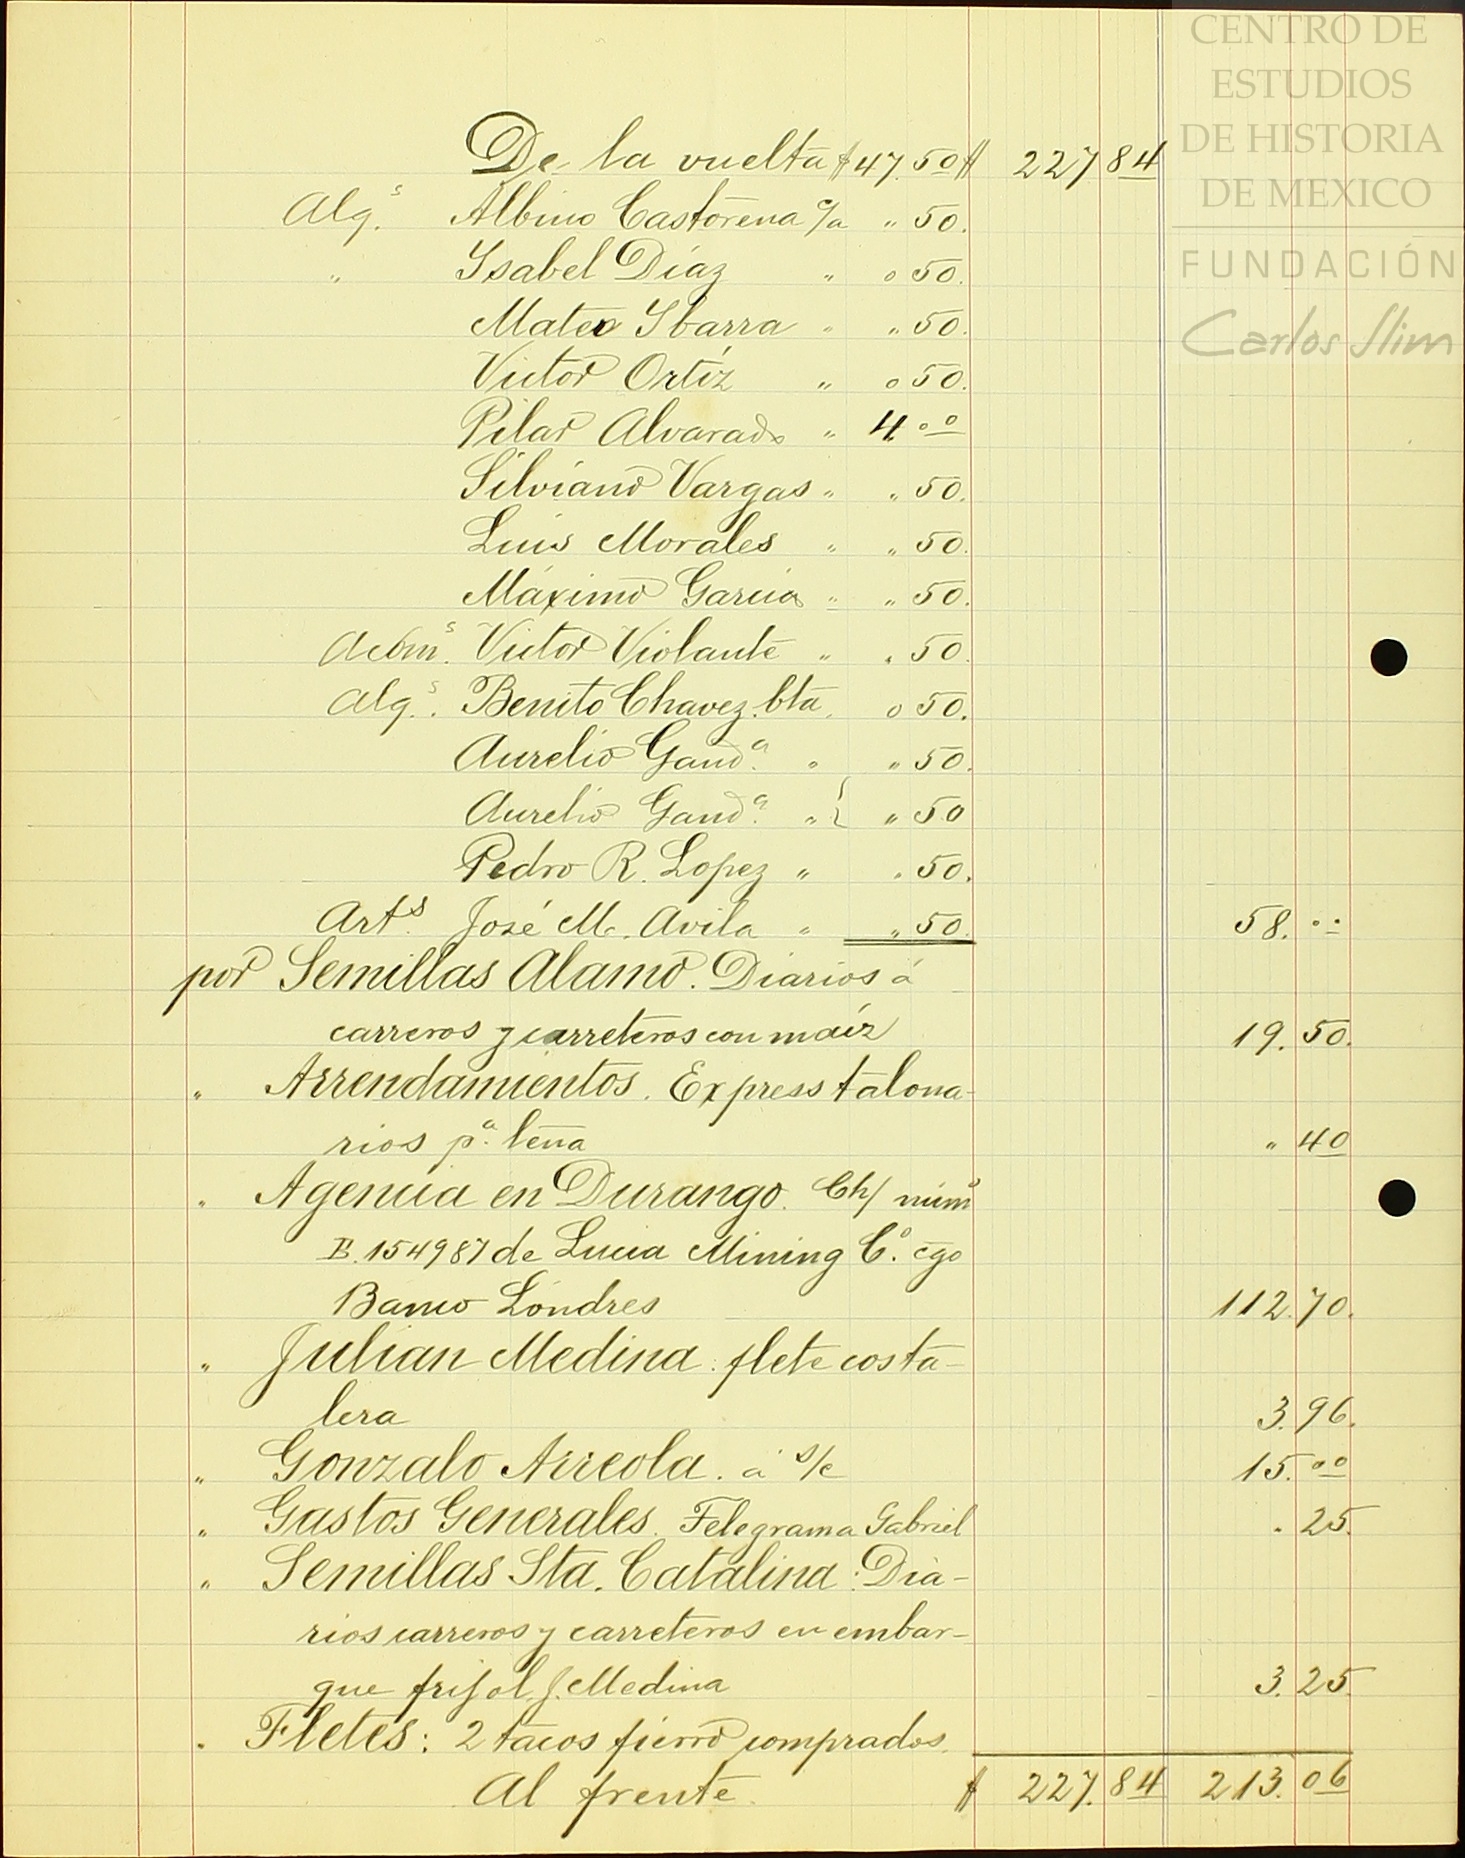 CENTRO DE
ESTUDIOS
DE HISTORIA
DE MEXICO
FUNDACIÓN
Carlos Slim
De la vuelta $ 47.50 $ 227 84
Alg.s Albino Castorena c/a " 50.
" Ysabel Diaz " " 50.
Mateo Ybarra " " 50.
Victor Ortíz " " 50.
Pilar Alvarado " 4.00
Silviano Vargas " " 50.
Luis Morales " " 50.
Máximo Garcia " " 50.
Victor Violante " " 50.
Alg.s Benito Chavez bta. " 50.
Aurelio Gand.a " " 50.
Aurelio Gand.a " } " 50
Pedro R. Lopez " " 50.
Art.s José M. Avila " " 50. 58.00
por Semillas Alamo. Diarios á
carreros y carreteros con maíz 19.50.
" Arrendamientos. Express talona-
rios p.a leña " 40
" Agencia en Durango. Ch/ núm
B. 154987 de Lucia Mining Co. cgo
Banco Londres 112.70.
" Julian Medina: flete costa-
lera 3.96.
" Gonzalo Arreola. á s/c 15.00
" Gastos Generales. Telegrama Gabriel " 25.
" Semillas Sta. Catalina: Dia-
rios carreros y carreteros en embar-
que frijol J. Medina 3.25.
" Fletes: 2 tacos fierro comprados.
Al frente. $ 227.84 213.06